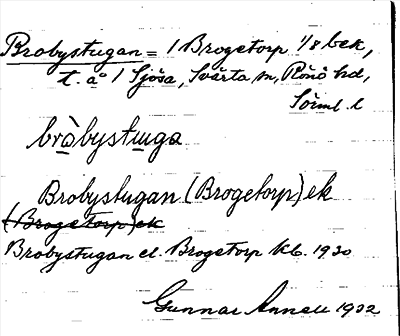 Brobystugan = / Brogetorp 1/8 bek,
t. a° / Sjösa, Svärta sn, Rönö hd,
Sörml. l
bròbystuga
Brobystugan (Brogetorp) ek
(Brogetorp) ek
Brobystugan el. Brogetorp Kb. 1930
Gunnar Annell 1932